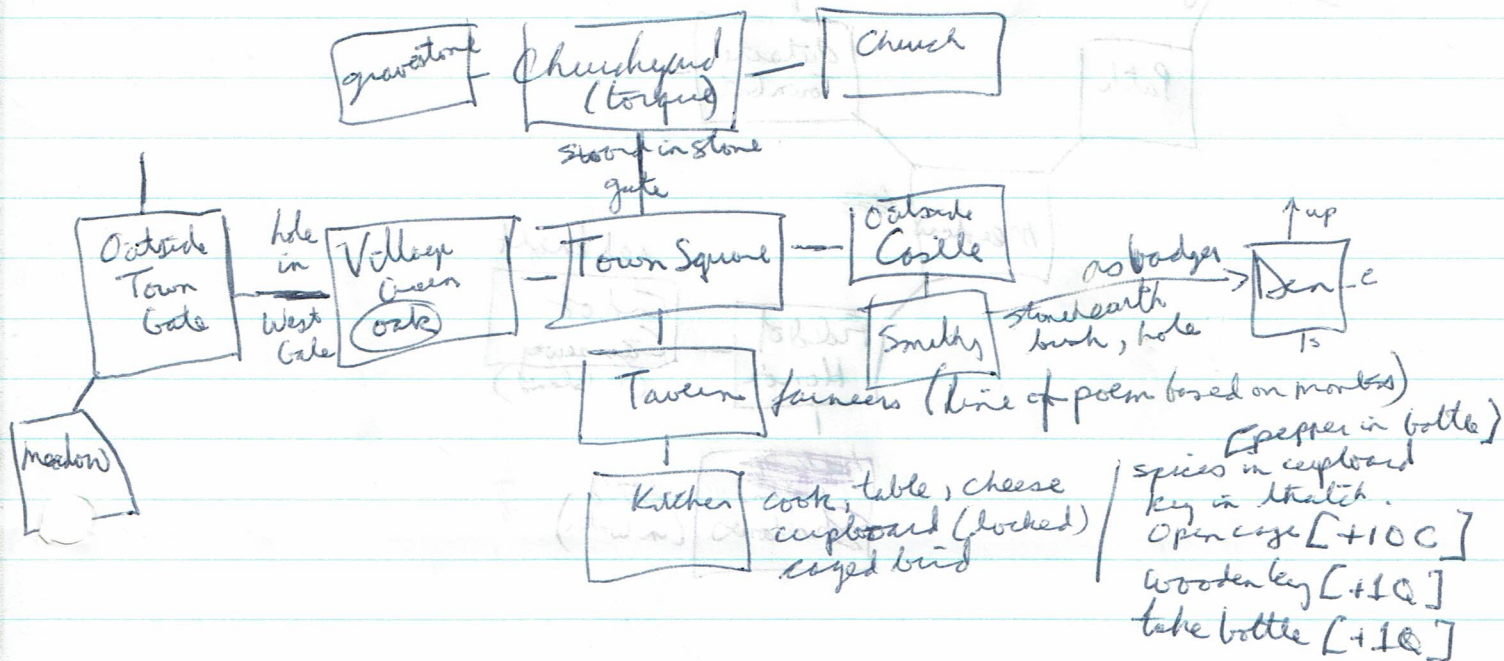 gravestone
Churchyard
(torque)
Church
sword in stone
gate
Outside
Town
Gate
hole
in
West
Gate
Village
Green
oak
Town Square
Outside
Castle
Smithy
as badger
stone hearth
bush, hole
Den
up
E
S
meadow
Tavern
farmers (line of poem based on monks)
Kitchen
cook, table, cheese
cupboard (locked)
caged bird
[pepper in bottle]
spices in cupboard
key in thatch.
Open cage [+10C]
wooden key [+1Q]
take bottle [+1Q]
Path